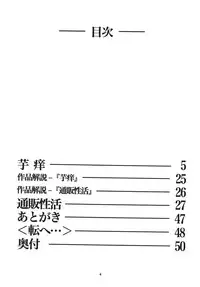 目次
芋痒 5
作品解説－『芋痒』 25
作品解説－『通販性活』 26
通販性活 27
あとがき 47
＜転へ…＞ 48
奥付 50